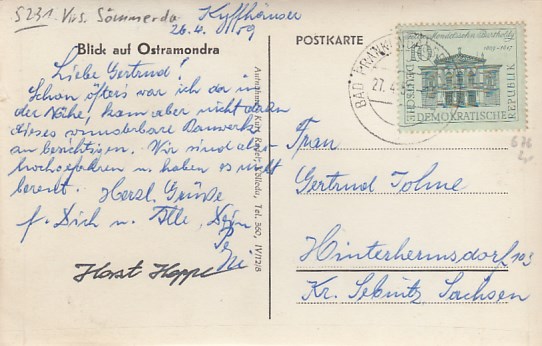 5231 Krs. Sömmerda
Kyffhäuser
26.4.59
Blick auf Ostramondra
POSTKARTE
Liebe Gertrud!
Schon öfters war ich da in
der Nähe, kam aber nicht daran
dieses wunderbare Bauwerk
zu besichtigen. Wir sind also
hochgefahren u. haben es nicht
bereut. Herzl. Grüße
f. Dich u. Alle, Dein
Horst Hoppe
Kölleda, Tel. 360, IV/12/8
BAD FRANKENHAUSEN
27.4.
Mendelssohn Bartholdy
1809-1847
10
DEUTSCHE
DEMOKRATISCHE
REPUBLIK
676
Frau
Gertrud Tohne
Hinterhermsdorf 103
Kr. Sebnitz Sachsen